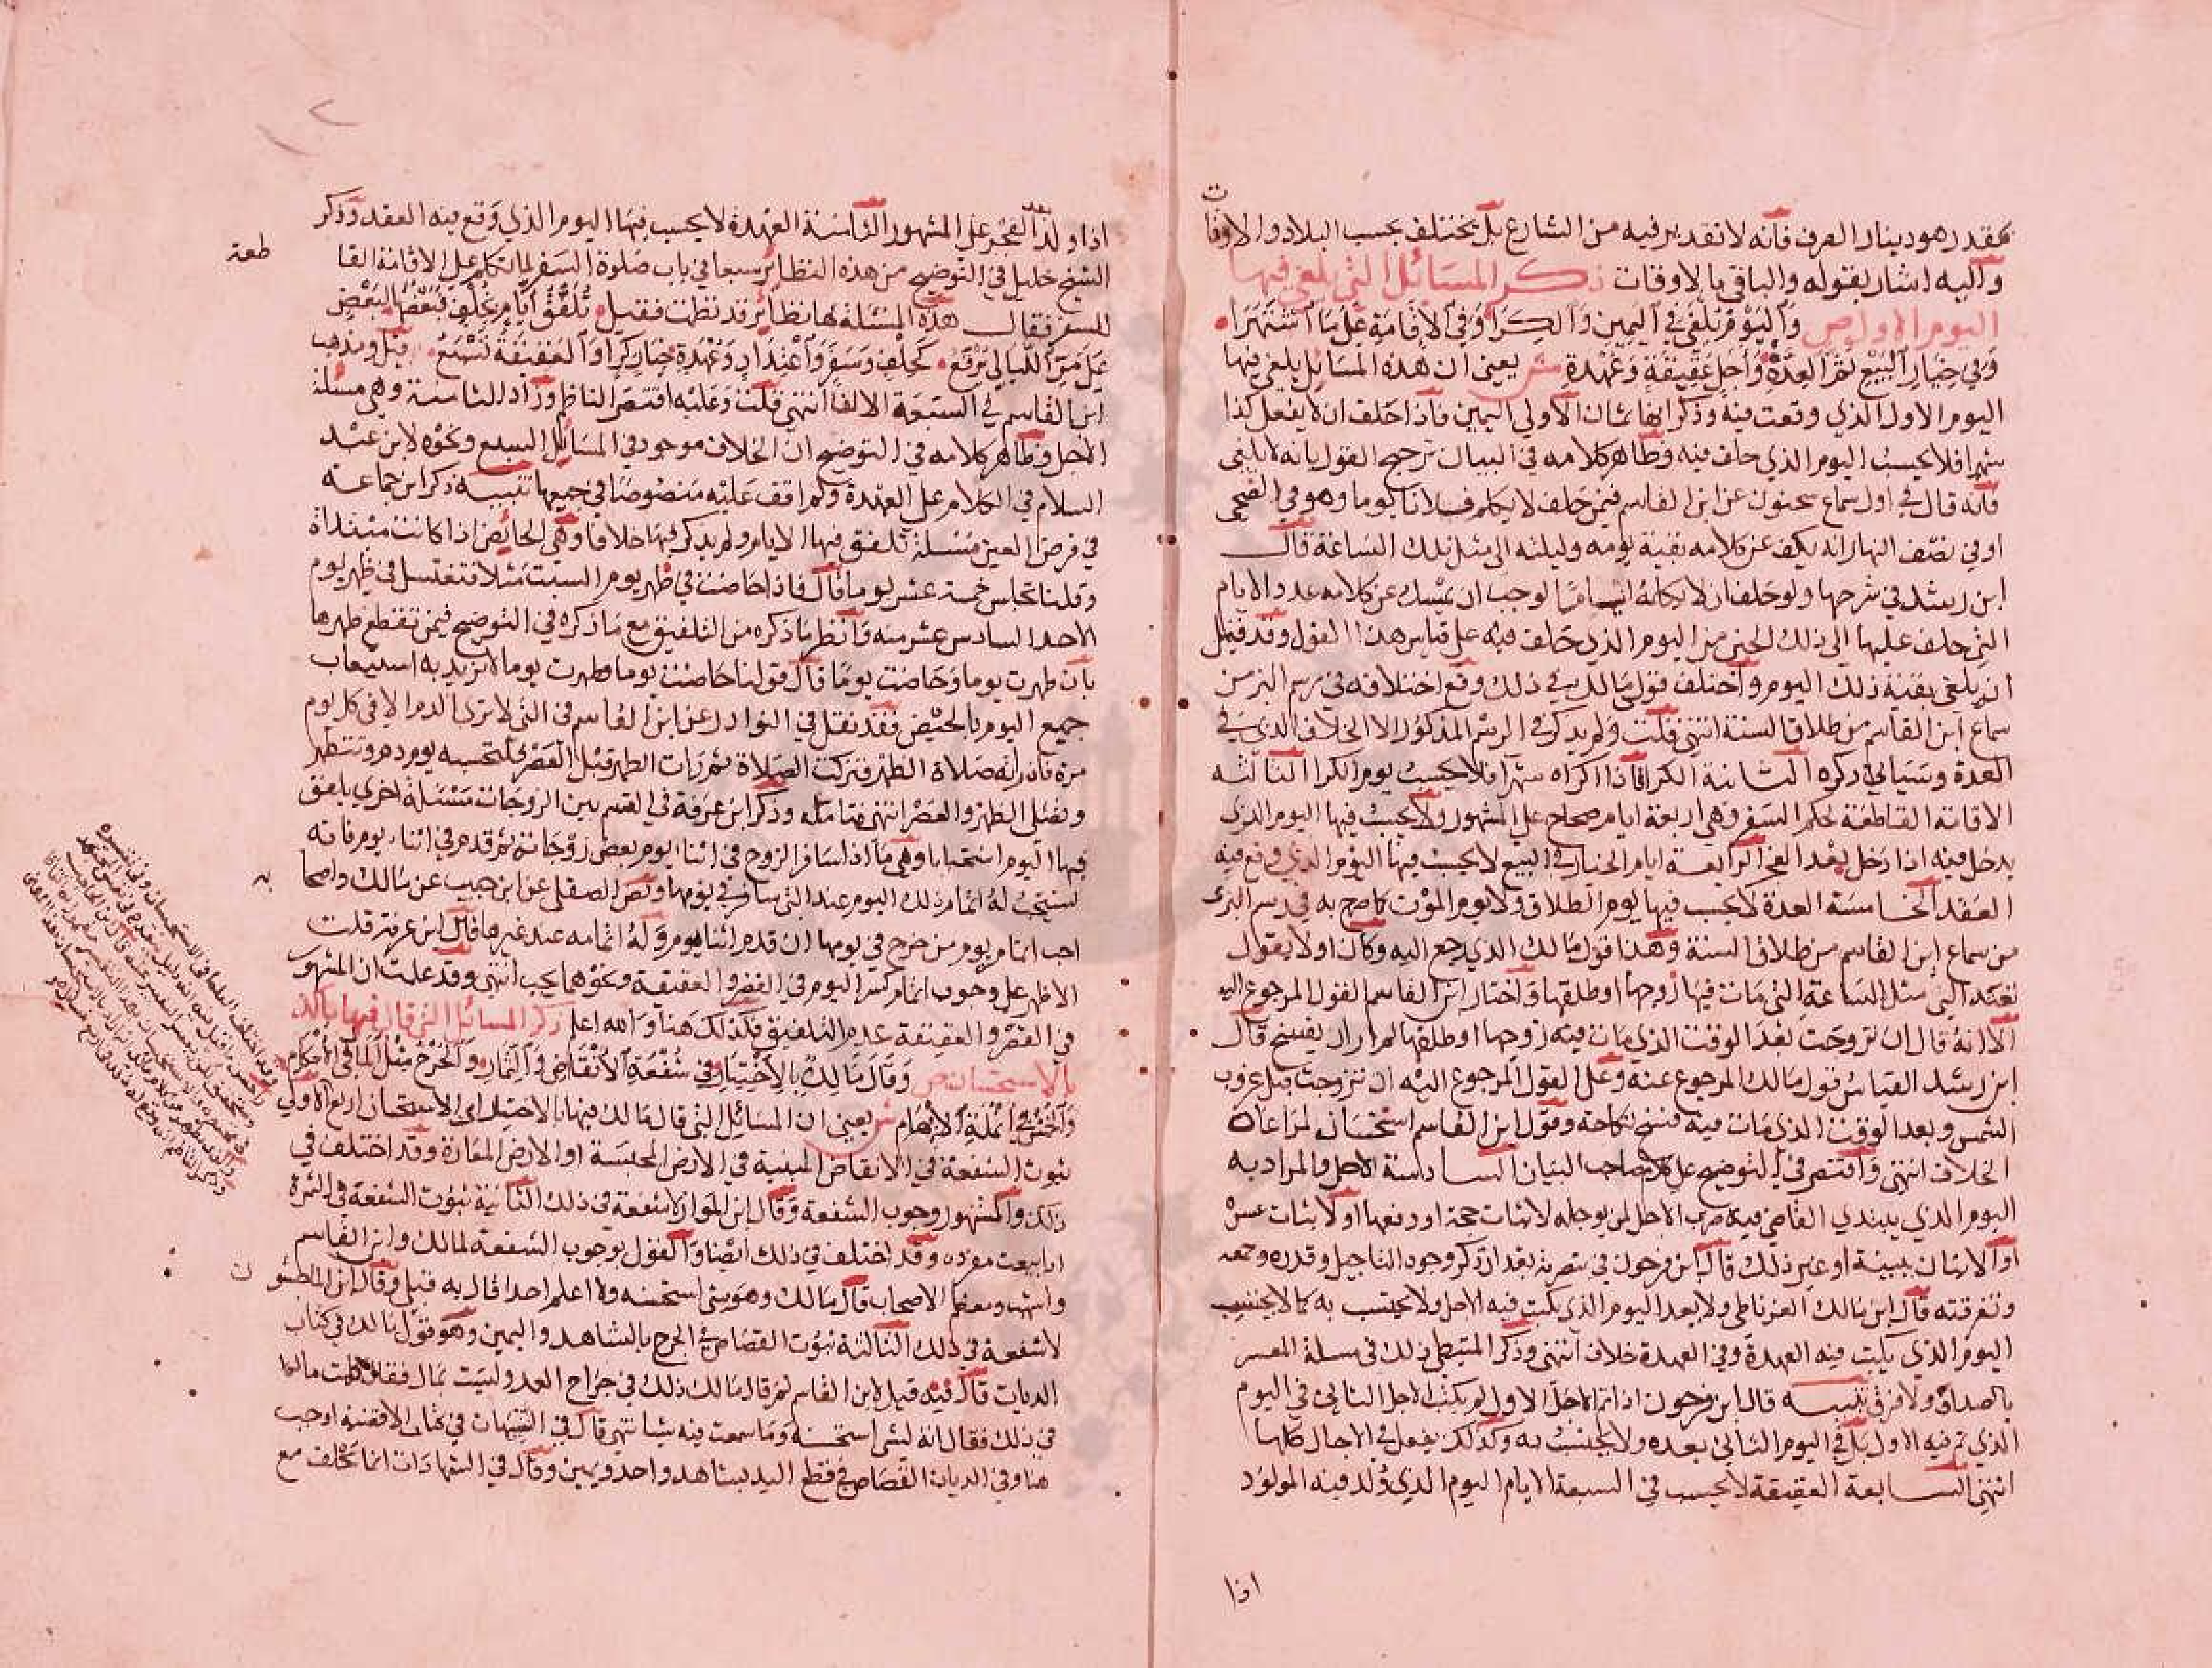 بقدر هو دينار الصرف فانه لا تقدير فيه من الشارع بل يختلف بحسب البلاد والاوقات
واليه اشار بقوله والباقي بالاوقات ذكر المسائل التي يلغى فيها
اليوم الاول ص وَاليَوْمُ يُلْغَى في اليَمِينِ وَالكِرَا وَفي الاِقَامَةِ عَلَى مَا اشْتَهَرَا
وَفي خِيَارِ البَيْعِ ثُمَّ العِدَّةِ وَأَجَلٍ عَقِيقَةٍ وَعُهْدَةِ ش يعني ان هذه المسائل يلغى فيها
اليوم الاول الذي وقعت فيه وذكر انها ثمان الاولى اليمين فاذا حلف ان لا يفعل كذا
شهرا فلا يحسب اليوم الذي حلف فيه وظاهر كلامه في البيان ترجيح القول بانه لا يلغى
فانه قال في اول سماع سحنون عن ابن القاسم فيمن حلف لا يكلم فلانا يوما وهو في الضحى
او في نصف النهار انه يكف عن كلامه بقية يومه وليلته الى مثل تلك الساعة قال
ابن رشد في شرحها ولو حلف ان لا يكلمه اياما لوجب ان يمسك عن كلامه عدد الايام
التي حلف عليها الى ذلك الحين من اليوم الذي حلف فيه على قياس هذا القول وقد قيل
انه يلغى بقية ذلك اليوم واختلف قول مالك في ذلك وقع اختلافه في رسم البز من
سماع ابن القاسم من طلاق السنة انتهى قلت ولم يذكر في الرسم المذكور الا الخلاف الذي في
العدة وسياتي ذكره الثانية الكرا فاذا اكراه شهرا فلا يحسب يوم الكرا الثالثة
الاقامة القاطعة لحكم السفر وهي اربعة ايام صحاح على المشهور ولا يحسب فيها اليوم الذي
يدخل فيه اذا دخل بعد الفجر الرابعة ايام الخيار في البيع لا يحسب فيها اليوم الذي وقع فيه
العقد الخامسة العدة لا يحسب فيها يوم الطلاق ولا يوم الموت كما صرح به في رسم البز
من سماع ابن القاسم من طلاق السنة وهذا قول مالك الذي رجع اليه وكان اولا يقول
تعتد الى مثل الساعة التي مات فيها زوجها او طلقها واختار ابن القاسم القول المرجوع اليه
الا انه قال ان تزوجت بعد الوقت الذي مات فيه زوجها او طلقها لم ار ان يفسخ قال
ابن رشد القياس قول مالك المرجوع عنه وعلى القول المرجوع اليه ان تزوجت قبل غروب
الشمس وبعد الوقت الذي مات فيه فسخ نكاحه وقول ابن القاسم استحسان لمراعاة
الخلاف انتهى واقتصر في التوضيح على كلام صاحب البيان السادسة الاجل والمراد به
اليوم الذي يبتدي القاضي فيه ضرب الاجل لمن يوجله لاثبات حجة او دفعها او لاثبات عسر
او الاتيان ببينة او غير ذلك قال ابن فرحون في تبصرته بعد ان ذكر وجوه التاجيل وقدره وجمعه
وتفرقته قال ابن مالك الغرناطي ولا يعد اليوم الذي يكتب فيه الاجل ولا يحتسب به كما لا يحتسب
اليوم الذي يكتب فيه العهدة وفي العهدة خلاف انتهى وذكر المتيطي ذلك في مسئلة المعسر
بالصداق ولا فرق تنبيه قال ابن فرحون اذا تم الاجل الاول لم يكتب الاجل الثاني في اليوم
الذي تم فيه الاول بل في اليوم الثاني بعده ولا يحتسب به وكذلك يفعل في الاجال كلها
انتهى السابعة العقيقة لا يحسب في السبعة الايام اليوم الذي ولد فيه المولود
اذا
اذا ولد بعد الفجر على المشهور الثامنة العهدة لا يحسب فيها اليوم الذي وقع فيه العقد وذكر
الشيخ خليل في التوضيح من هذه النظائر سبعا في باب صلوة السفر لما تكلم على الاقامة القا
طعة
للسفر فقال هذه المسئلة لها نظائر قد نظمت فقيل تُلَفَّقُ أَيَّامٌ بِخُلْفٍ فَبَعْضُهَا لِبَعْضٍ
عَلَى مَرِّ اللَّيَالِي يَرْقَعُ كَحِلْفٍ وَسَفَرٍ وَاعْتِدَادٍ وَعُهْدَةٍ خِيَارٍ كِرَا وَالعَقِيقَةِ تَسْبَعُ قيل ومذهب
ابن القاسم في السبعة الالغا انتهى قلت وعليه اقتصر الناظم وزاد الثامنة وهي مسئلة
الاجل وظاهر كلامه في التوضيح ان الخلاف موجود في المسائل السبع ونحوه لابن عبد
السلام في الكلام على العهدة ولم اقف عليه منصوصا في جميعها تنبيه ذكر ابن جماعة
في فرض العين مسئلة تلفق فيها الايام ولم يذكر فيها خلافا وهي الحائض اذا كانت مبتداة
وقلنا تجلس خمسة عشر يوما قال فاذا حاضت في ظهر يوم السبت مثلا فتغتسل في ظهر يوم
الاحد السادس عشر منه وانظر ما ذكره من التلفيق مع ما ذكره في التوضيح فيمن تقطع طهرها
بان طهرت يوما وحاضت يوما قال قولنا حاضت يوما وطهرت يوما لا نريد به استيعاب
جميع اليوم بالحيض فقد نقل في النوادر عن ابن القاسم في التي لا ترى الدم الا في كل يوم
مرة فان راته صلاة الظهر فتركت الصلاة ثم رات الطهر قبل العصر فلتحسبه يوم دم وتتطهر
وتصلي الظهر والعصر انتهى فتامله وذكر ابن عرفة في القسم بين الزوجات مسئلة اخرى يلفق
فيها اليوم استحبابا وهي ما اذا سافر الزوج في اثناء يوم بعض زوجاته ثم قدم في اثناء يوم فانه
يستحب له اتمام ذلك اليوم عند التي سافر في يومها ونص الصقلي عن ابن حبيب عن مالك واصحا
به
احب اتمام يوم من خرج في يومها ان قدم اثنا يوم وله اتمامه عند غيرها قال ابن عرفة قلت
الاظهر على وجوب اتمام كسر اليوم في القصر والعقيقة ونحوهما يجب انتهى وقد علمت ان المشهور
في القصر والعقيقة عدم التلفيق فكذلك هنا والله اعلم ذكر المسائل التي قال فيها مالك
بالاستحسان ص وَقَالَ مَالِكٌ بِالاِخْتِيَارِ في شُفْعَةِ الاَنْقَاضِ وَالثِّمَارِ وَالجَرْحِ مِثْلُ المَالِ في الاَحْكَامِ
وَالخَمْسُ في أَنْمُلَةِ الاِبْهَامِ ش يعني ان المسائل التي قال مالك فيها بالاختيار اي الاستحسان اربع الاولى
ثبوت الشفعة في الانقاض المبنية في الارض المحبسة او الارض المعارة وقد اختلف في
ذلك والمشهور وجوب الشفعة وقال ابن المواز لا شفعة في ذلك الثانية ثبوت الشفعة في الثمرة
اذا بيعت مفردة وقد اختلف في ذلك ايضا والقول بوجوب الشفعة لمالك وابن القاسم
واشهب ومعظم الاصحاب قال مالك وهو شي استحسنه ولا اعلم احدا قال به قبلي وقال ابن الماجشو
ن
لا شفعة في ذلك الثالثة ثبوت القصاص في الجرح بالشاهد واليمين وهو قول مالك في كتاب
الديات قال فيه قيل لابن القاسم لم قال مالك ذلك في جراح العمد وليست بمال فقال كلمت مالكا
في ذلك فقال انه لشي استحسنه وما سمعت فيه شيا انتهى قال في التنبيهات في كتاب الاقضية اوجب
هنا وفي الديات القصاص في قطع اليد بشاهد واحد ويمين وقال في الشهادات انما يحلف مع